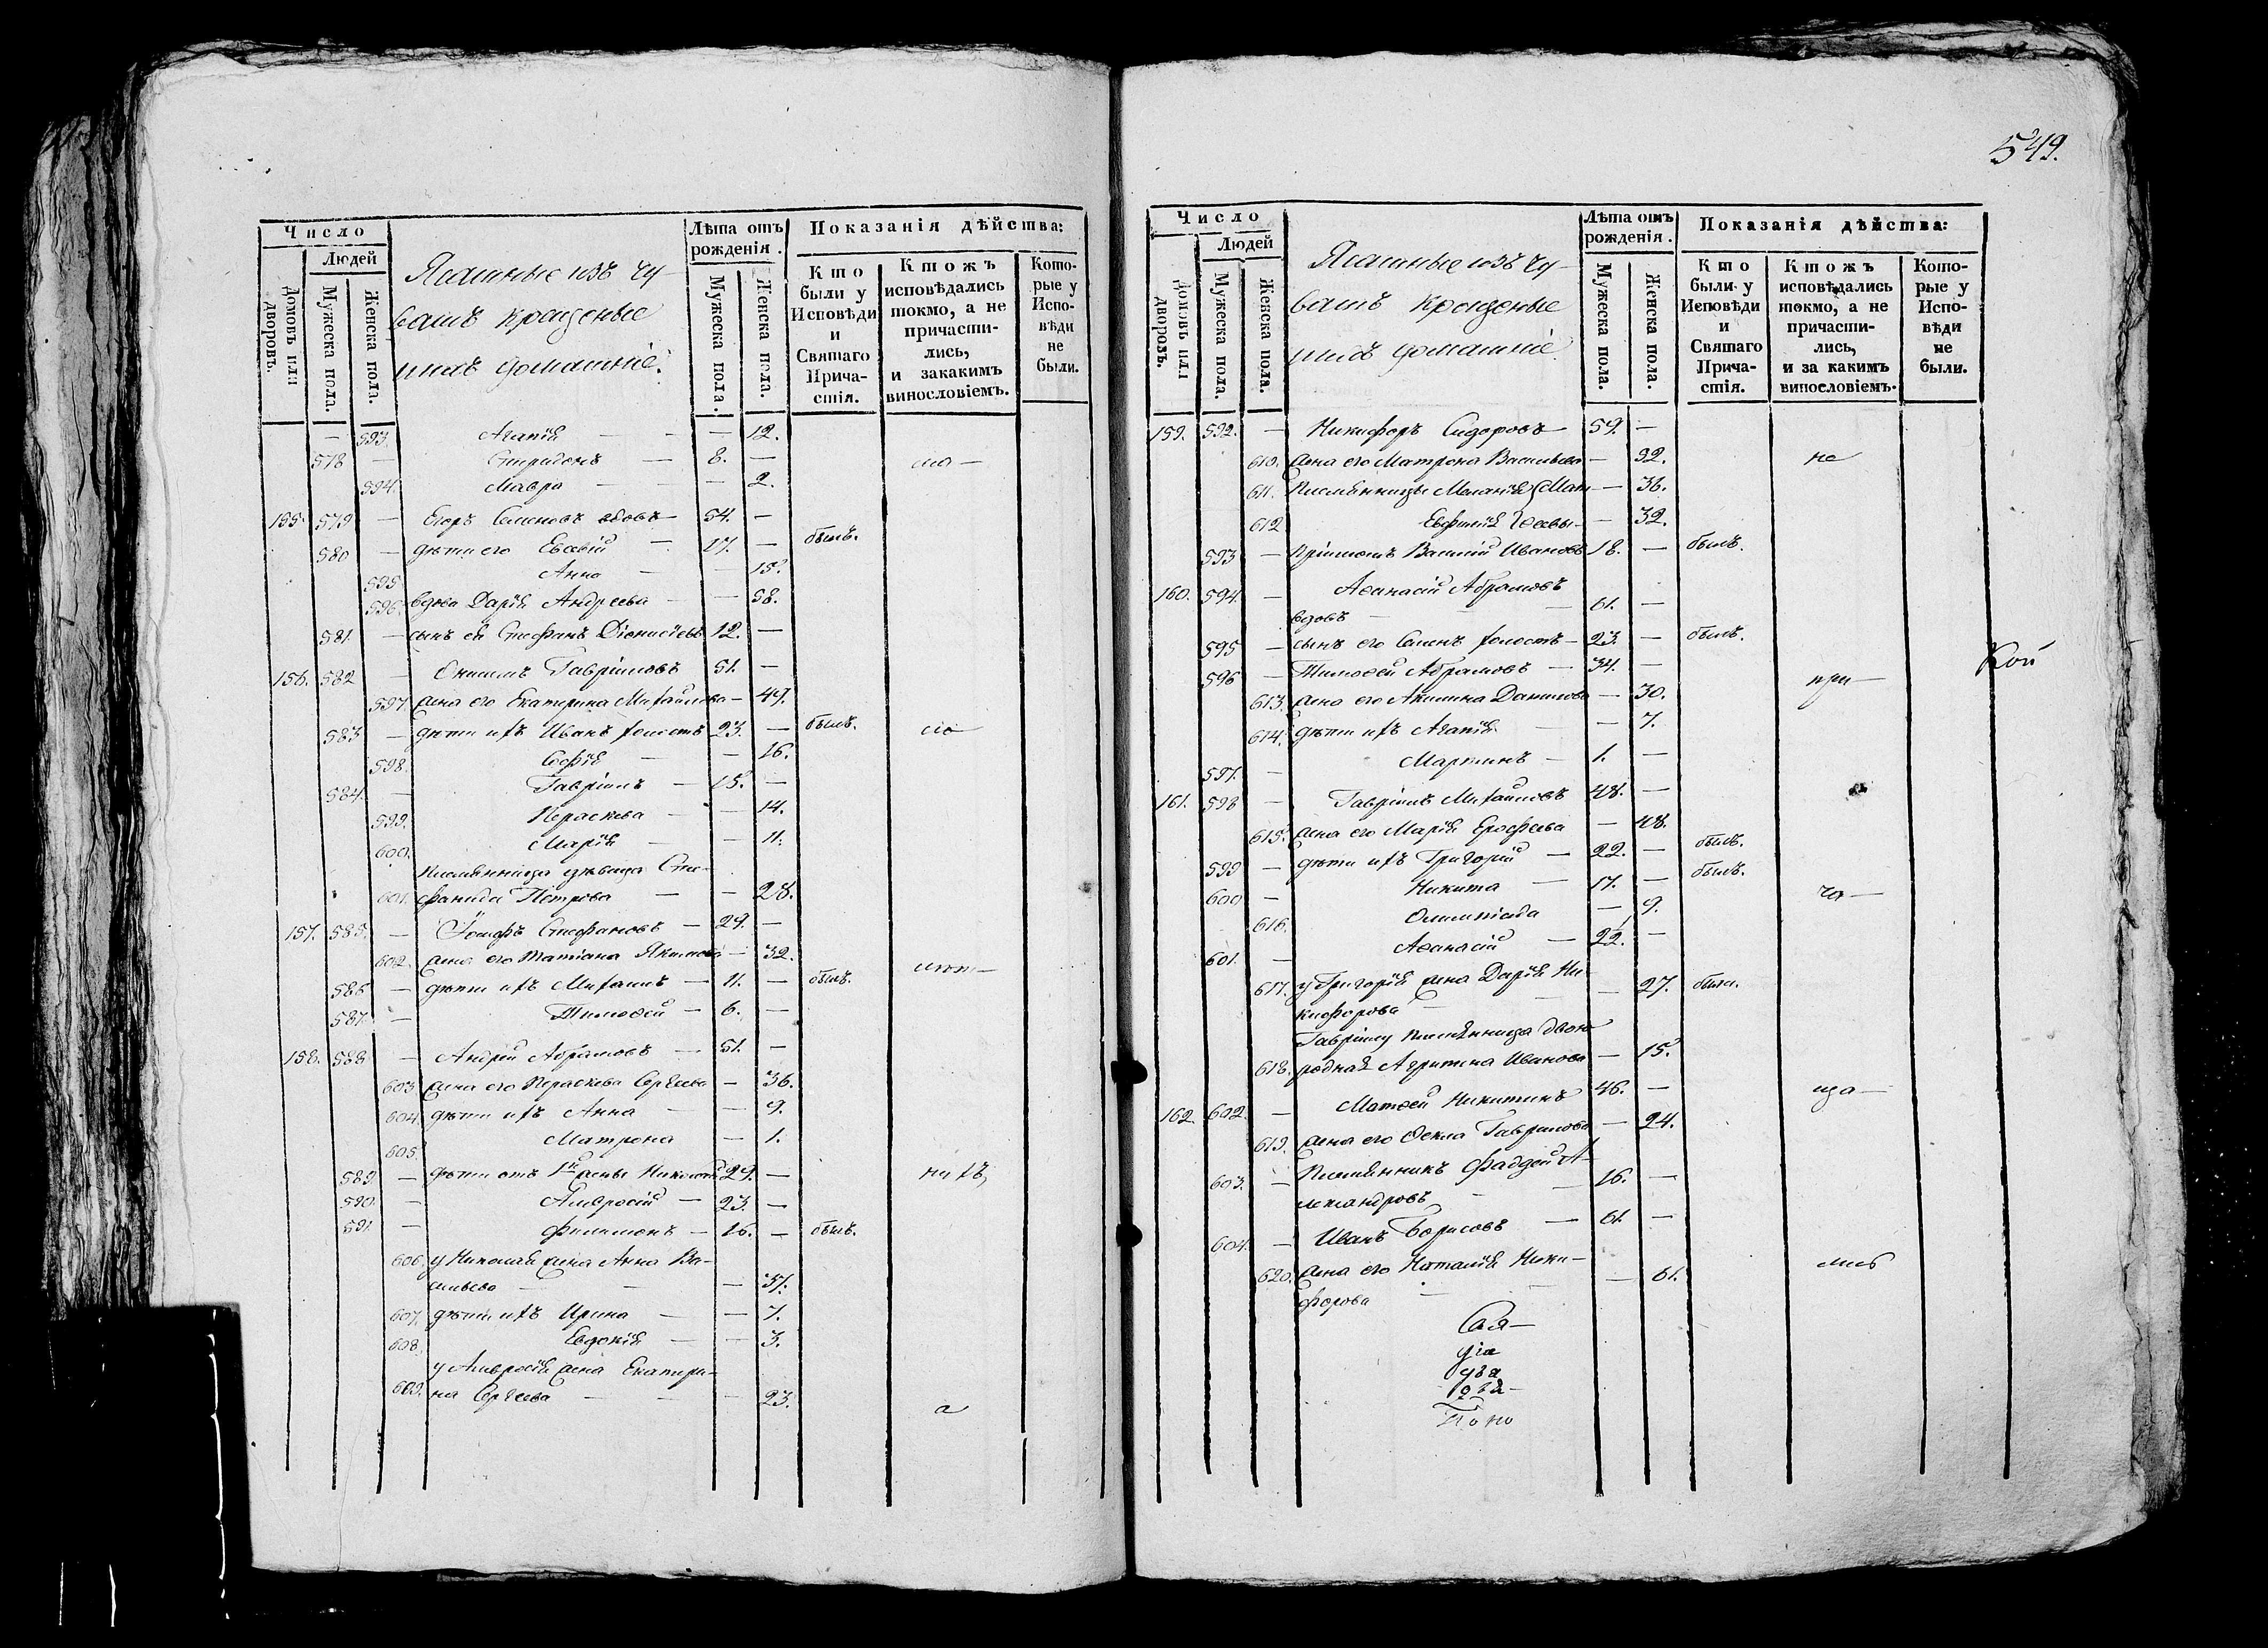 549.
Число
Людей
Домовъ или дворовъ.
Мужеска пола.
Женска пола.
Ясашные изъ чу-
вашъ крещеные
и ихъ домашніе.
Лѣта отъ рожденія.
Мужеска пола.
Женска пола.
Показанія дѣйства:
Кто были у Исповѣди и Святаго Причастія.
Ктожъ исповѣдались токмо, а не причастились, и закакимъ винословіемъ.
Которые у Исповѣди не были.
— 593. Агапія — — 12.
578 — Спиридонъ — 8. —
594. Мавра — — 2.
155. 579 — Егоръ Семеновъ вдовъ 54. —
580 — дѣти его Евсевій — 17. — былъ.
595 Анна — — 15.
596. вдова Дарія Андреева — — 58.
581 — сынъ ея Стефанъ Діонисіевъ 12. —
156. 582 — Онисимъ Гавріиловъ 51. —
597. жена его Екатерина Михайлова — 49.
583 — дѣти ихъ Иванъ холостъ 23. — былъ.
598. Софія — — 16.
584. — Гавріилъ — 15. —
599. Параскева — — 14.
600. Марія — — 11.
племянница дѣвица Сте-
601. фанида Петрова — — 28.
157. 585. — Іосифъ Стефановъ — 29. —
602. жена его Татіана Якимова — 32.
586 — дѣти ихъ Михаилъ — 11. — былъ.
587. — Тимоѳей — 6. —
158. 588 — Андрей Абрамовъ — 51. —
603 жена его Параскева Сергѣева — 36.
604. дѣти ихъ Анна — — 9.
605. Матрона — 1.
589 — дѣти отъ 1й жены Николай 29. —
590. — Амвросій — 23. —
591 — Филимонъ — 16. — былъ.
606. у Николая жена Анна Ва-
сильева — — — 37.
607. дѣти ихъ Ирина — — 7.
608. Евдокія — — 3.
у Амвросія жена Екатери-
609. на Сергѣева — — — 23.
Число
Людей
Домовъ или дворовъ.
Мужеска пола.
Женска пола.
Ясашные изъ чу-
вашъ крещеные
и ихъ домашніе.
Лѣта отъ рожденія.
Мужеска пола.
Женска пола.
Показанія дѣйства:
Кто были у Исповѣди и Святаго Причастія.
Ктожъ исповѣдались токмо, а не причастились, и за какимъ винословіемъ.
Которые у Исповѣди не были.
159. 592. — Никифоръ Сидоровъ 59. —
610. жена его Матрона Васильева — 32. не
611. Племянницы Меланія — 36.
612 Евфимія — 32.
593 — пріимышъ Василій Ивановъ 18. — былъ.
160. 594. — Аѳанасій Абрамовъ
вдовъ — — 61. —
595 — сынъ его Семенъ холостъ — 23. — былъ.
596 — Тимоѳей Абрамовъ — 34. — при—
613. жена его Акилина Данилова — 30.
614. дѣти ихъ Агапія — — 7.
597. — Мартинъ — 1. —
161. 598 — Гавріилъ Михайловъ 48. —
615. жена его Марія Ерофеева — 48.
599 — дѣти ихъ Григорій — 22. — былъ.
600 — Никита — 17. — былъ.
616. Олимпіада — 9. ча—
601. — Аѳанасій —
617. у Григорія жена Дарія Ни-
кифорова — — 27. была.
Гавріилу племянница двою-
618. родная Агрипина Иванова — 15.
162. 602. — Матѳей Никитинъ 46. — ща—
619. жена его Ѳекла Гаврилова — 24.
603. — Племянникъ Фаддей А-
лександровъ — — 16. —
604. — Иванъ Борисовъ — 61 —
620. жена его Наталія Ники-
форова — — 61.